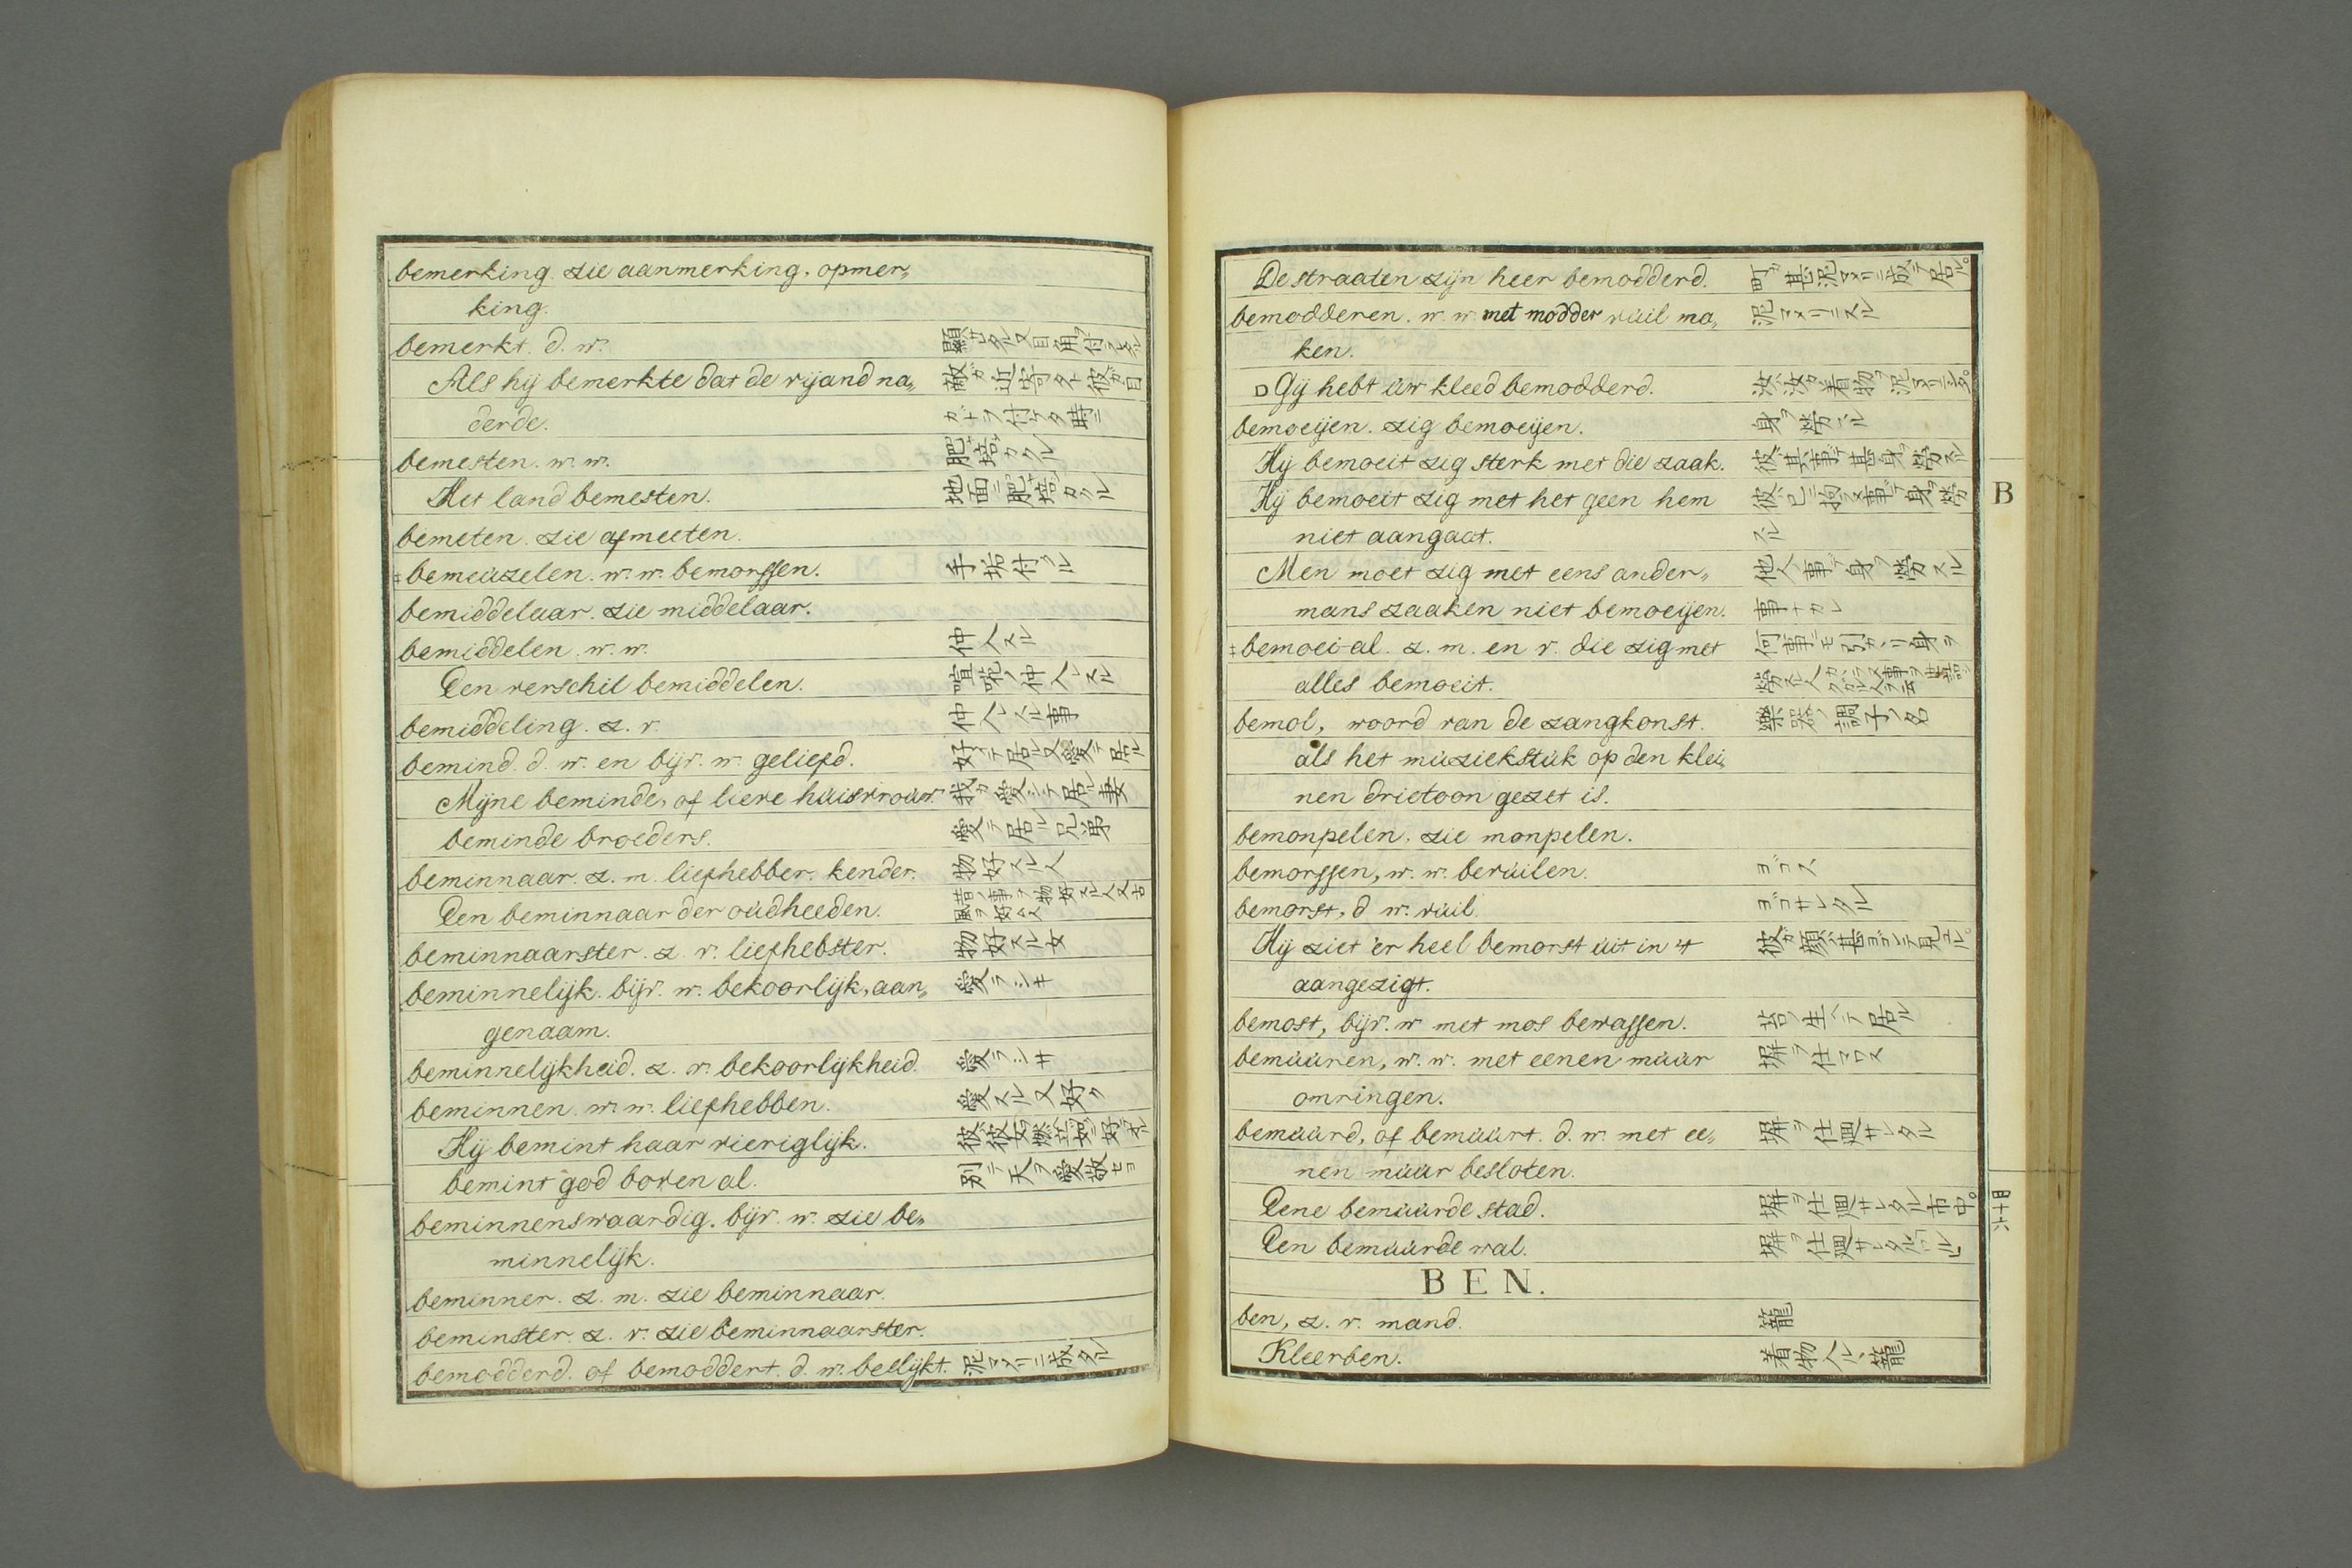 bemerking. zie aanmerking, opmer„
king.
bemerkt. d. w.
Als hij bemerkte dat de vijand na„ 敵ガ近寄タヿ彼ガ目
derde. ガトヲ付ケタ時ニ
bemesten. w. w. 肥培カクル
Het land bemesten. 地面ニ肥培カクル
bemeten. zie afmeeten.
‡bemeúzelen. w. w. bemorssen. 手垢付クル
bemiddelaar. zie middelaar.
bemiddelen. w. w. 仲人スル
Een verschil bemiddelen. 喧嘩ノ仲人スル
bemiddeling. z. v. 仲人スル事
bemind. d. w. en bijv. w. geliefd. 好テ居ル又愛テ居ル
Mijne beminde, of lieve húisvroúw. 我ガ愛シテ居ル妻
beminde broeders. 愛テ居ル兄弟
beminnaar. z. m. liefhebber. kender. 物好スル人
Een beminnaar der oúdheeden. 昔ノ事ヲ物好スル人又古
風ヲ好ム人
beminnaarster. z. v. liefhebster. 物好スル女
beminnelijk. bijv. w. bekoorlijk, aan„ 愛ラシキ
genaam.
beminnelijkheid. z. v. bekoorlijkheid. 愛ラシサ
beminnen. w. w. liefhebben. 愛スル又好ク
Hij bemint haar vieriglijk.
bemint god boven al. 別テ天ヲ愛敬セヨ
beminnenswaardig. bijv. w. zie be„
minnelijk.
beminner. z. m. zie beminnaar.
beminster. z. v. zie beminnaarster.
bemodderd. of bemoddert. d. w. beslijkt. 泥マメリニ成タル
De straaten zijn heer bemodderd. 町ガ甚泥マメリニ成テ居ル。
bemodderen. w. w. met modder vúil ma„ 泥マメリニスル
ken.
Gij hebt úw kleed bemodderd. 汝ハ汝ガ着物ヲ泥マメリニシタ。
bemoeijen. zig bemoeijen. 身ヲ労スル
Hij bemoeit zig sterk met die zaak. 彼ハ其事ニ甚身ヲ労スル
Hij bemoeit zig met het geen hem 彼ハ己ニ拘ラヌ事ニ身ヲ労
niet aangaat. スル
Men moet zig met eens ander„ 他人ノ事ニ身ヲ労スル
mans zaaken niet bemoeijen. 事ナカレ
‡bemoei-al. z. m. en v. die zig met 何事ニモ引カヽリ身ヲ
alles bemoeit.
bemol, woord van de zangkonst. 樂器ノ調子ノ名
als het múziekstúk op den klei„
nen drietoon gezet is.
bemonpelen. zie monpelen.
bemorssen, w. w. bevúilen. ヨゴス
bemorst, d w. vúil. ヨゴサレタル
Hij ziet 'er heel bemorst úit in 't 彼ガ顔ハ甚ヨゴレテ見ユル。
aangezigt.
bemost, bijv. w met mos bewassen. 苔ノ生ヘテ居ル
bemúúren, w. w. met eenen múúr 塀ヲ仕マワス
omringen.
bemúúrd, of bemúúrt. d. w. met ee„ 塀ヲ仕廻サレタル
nen múúr besloten.
Eene bemúúrde stad. 塀ヲ仕廻サレタル市中。
Een bemúúrde wal. 塀ヲ仕廻サレタル
BEN.
ben, z. v. mand. 籠
Kleerben. 着物入ルヽ籠
B